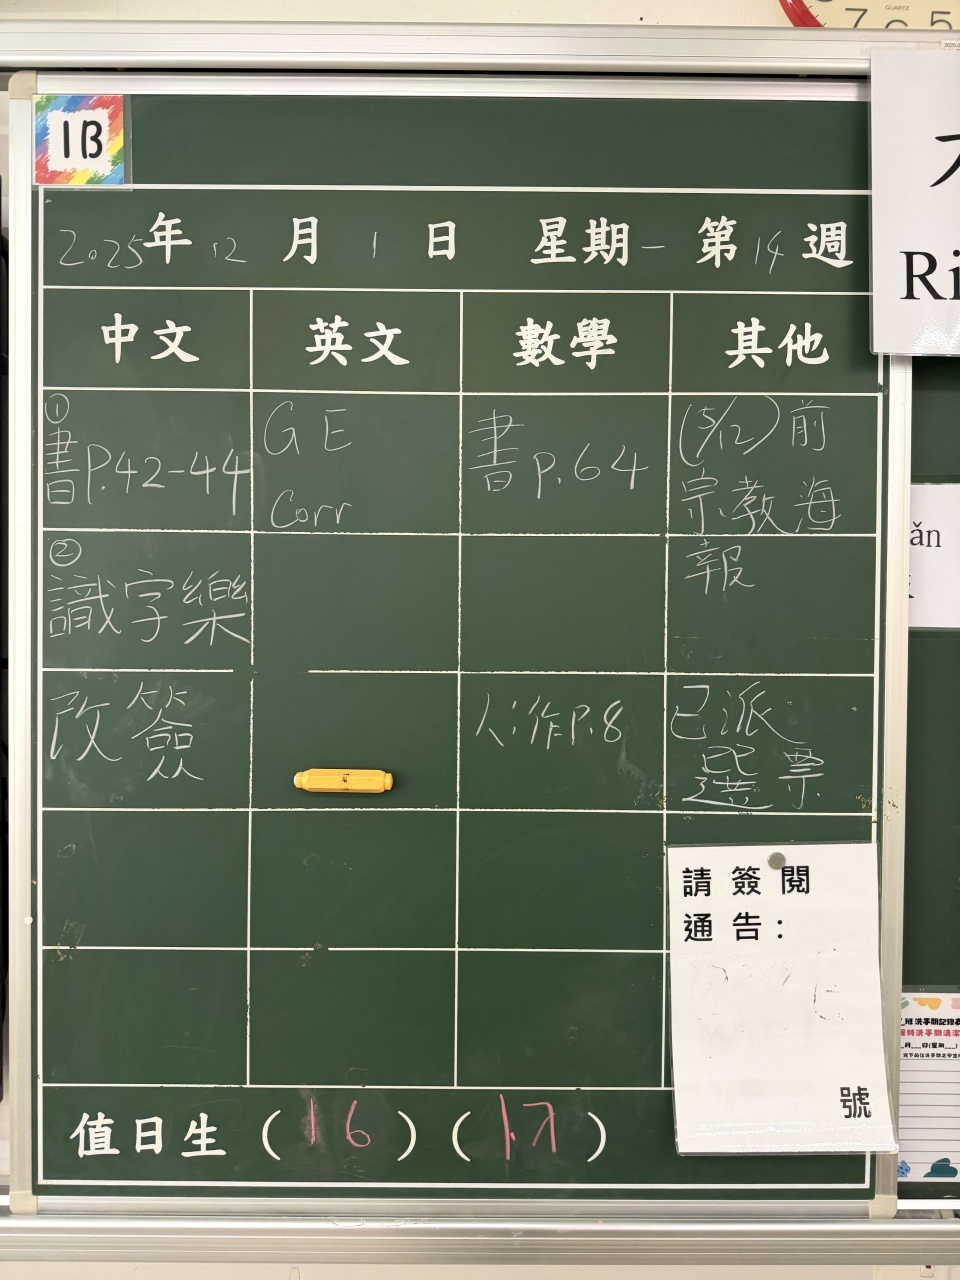 QUARTZ
7 6 5
1B
2025年 12 月 1 日 星期一 第 14 週
中文 英文 數學 其他
①
書P.42-44
GE
Corr
書p.64
(5/12)前
宗教海
報
②
識字樂
改簽
作P.8
已派
選票
請簽閱
通告：
號
值日生（16）（17）
Ri
ǎn